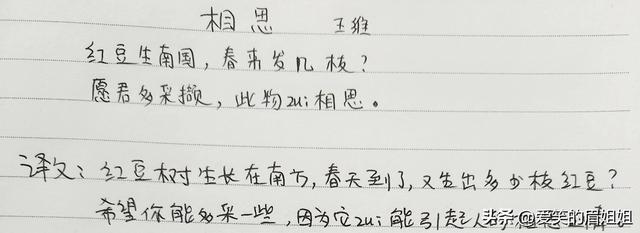 相思 王维
红豆生南国，春来发几枝？
愿君多采撷，此物zui相思。
译文：红豆树生长在南方，春天到了，又生出多少枝红豆？
希望你能多采一些，因为它zui能引起人
头条@爱笑的眉姐姐